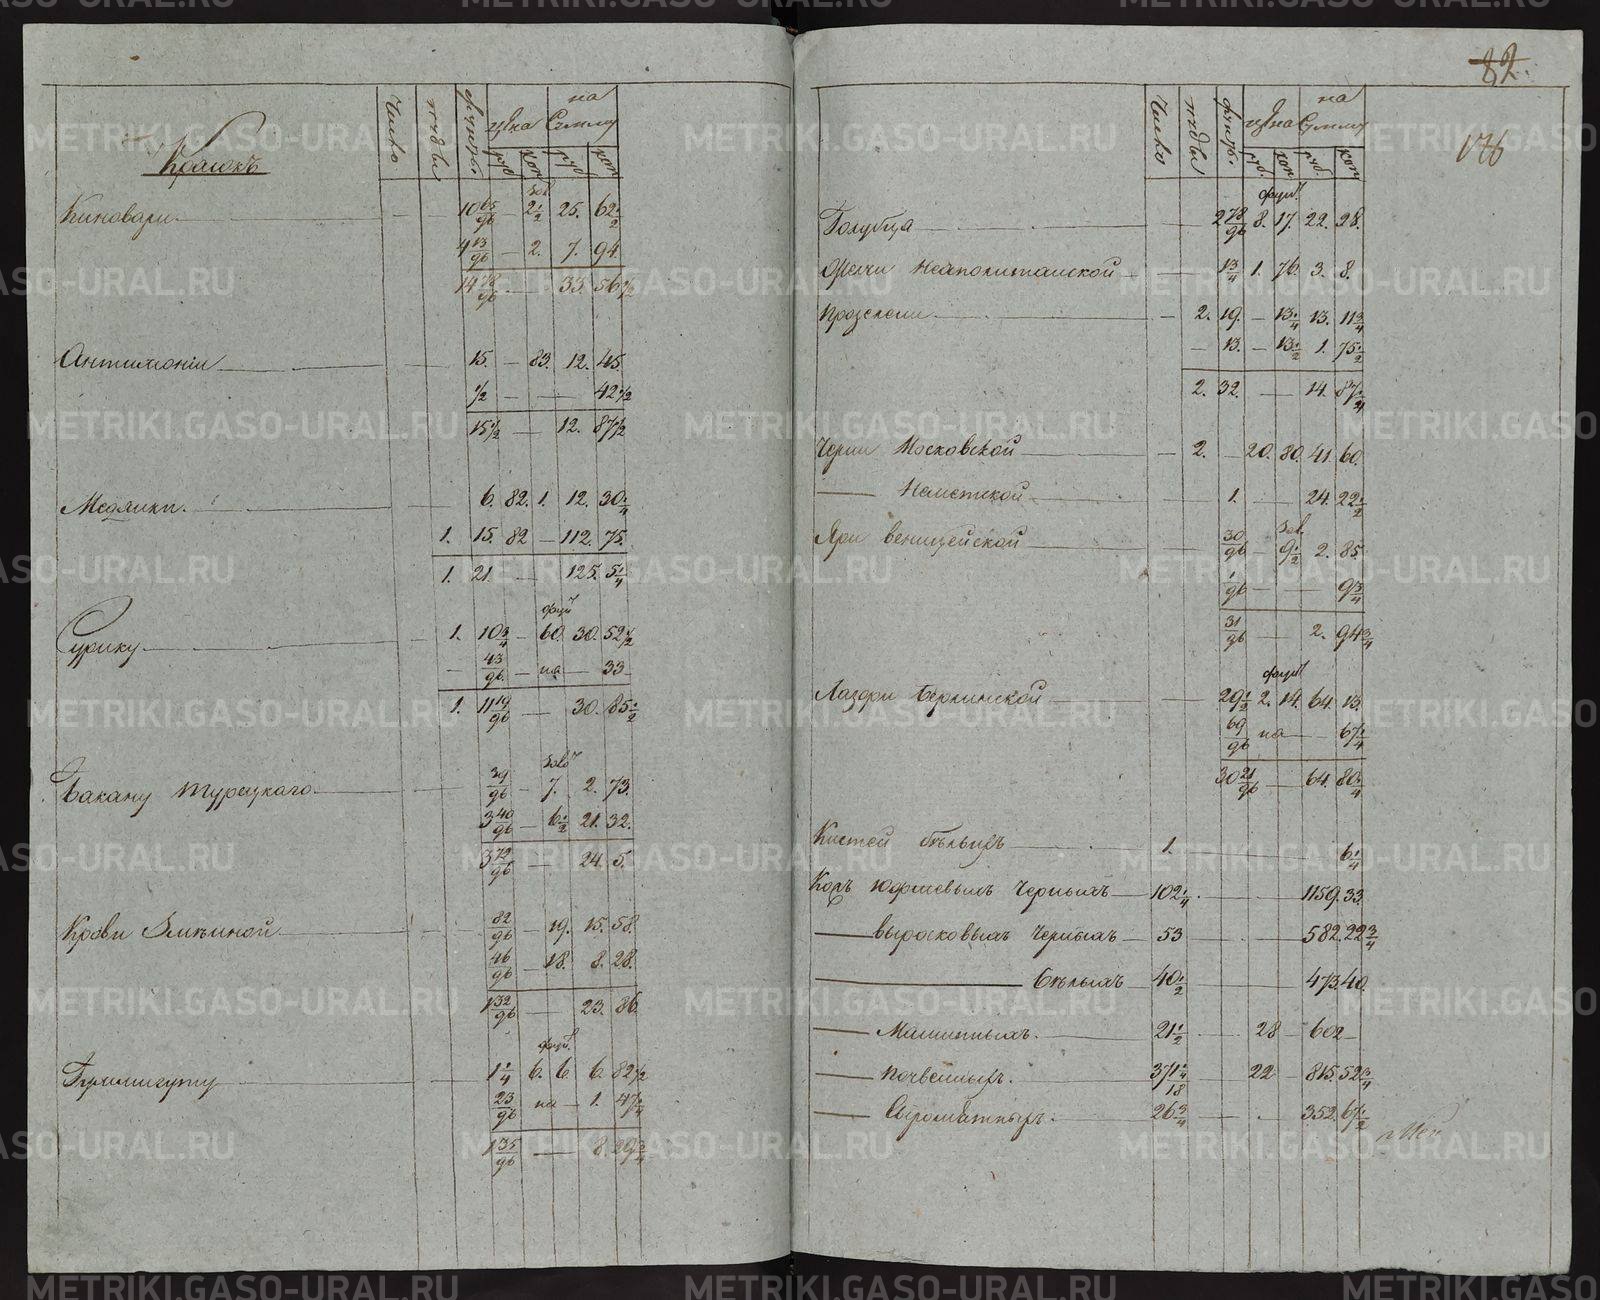 Красокъ
Число пуды фунты цѣна на Сумму
руб коп руб коп
Киновари 10 65/96 — 2 1/2 25. 62 1/2
4 13/96 — 2. 7. 94.
14 78/96 — 33. 56 1/2
Антимоніи 15. — 83. 12. 45.
1/2 — — 42 1/2
15 1/2 — 12. 87 1/2
Медянки. 6. 82. 1. 12. 30 1/4
1. 15. 82 — 112. 75.
1. 21. — 125. 5 1/4
фун
Сурику 1. 10 3/4 — 60. 30. 52 1/2
43/96 — на — 33
1. 11 19/96 — 30. 85 1/2
зол
Бакану турецкаго 39/96 — 7. 2. 73.
3 40/96 — 6 1/2 21. 32.
3 79/96 — 24. 5.
Крови Змѣиной 82/96 — 19. 15. 58.
46/96 — 18. 8. 28.
1 32/96 — 23. 86.
фун.
Гуммигуту 1 1/4 6. 6. 6. 82 1/2
23/96 на — 1. 47 1/4
1 35/96 — 8. 29 3/4
82.
176
Число пуды фунты. цѣна на Сумму
руб. коп. руб. коп
фунт.
Голубца 2 78/96 8. 17. 22. 28.
Желчи Неаполитанской 1 3/4 1. 76. 3. 8.
Празелени 2. 19. — 13 1/4 13. 11 3/4
— 13. — 13 1/2 1. 75 1/2
2. 32. — 14. 87 1/4
Черни Московской 2. — 20. 80. 41. 60.
— Немецкой 1. — 24. 22 1/2
зол.
Яри веницейской 30/96 — 9 1/2 2. 85.
1/96 — — 9 3/4
31/96 — 2. 94 3/4
фунт
Лазори Берлинской 29 1/2 2. 14. 64. 13.
69/96 на — 67 1/4
30 21/96 — 64. 80 1/4
Кистей бѣлыхъ 1. 6 1/4
Кожъ юфтевыхъ черныхъ 102 1/4 1159. 33.
— выростковыхъ черныхъ — 53 582. 22 3/4
— бѣлыхъ 40 1/2 473. 40.
— Машинныхъ. 21 1/2 28 — 602 —
— Почвенныхъ. 37 1/18 22 — 815. 52 3/4
— Сыромятныхъ. 26 3/4 352. 67 1/2
METRIKI.GASO-URAL.RU